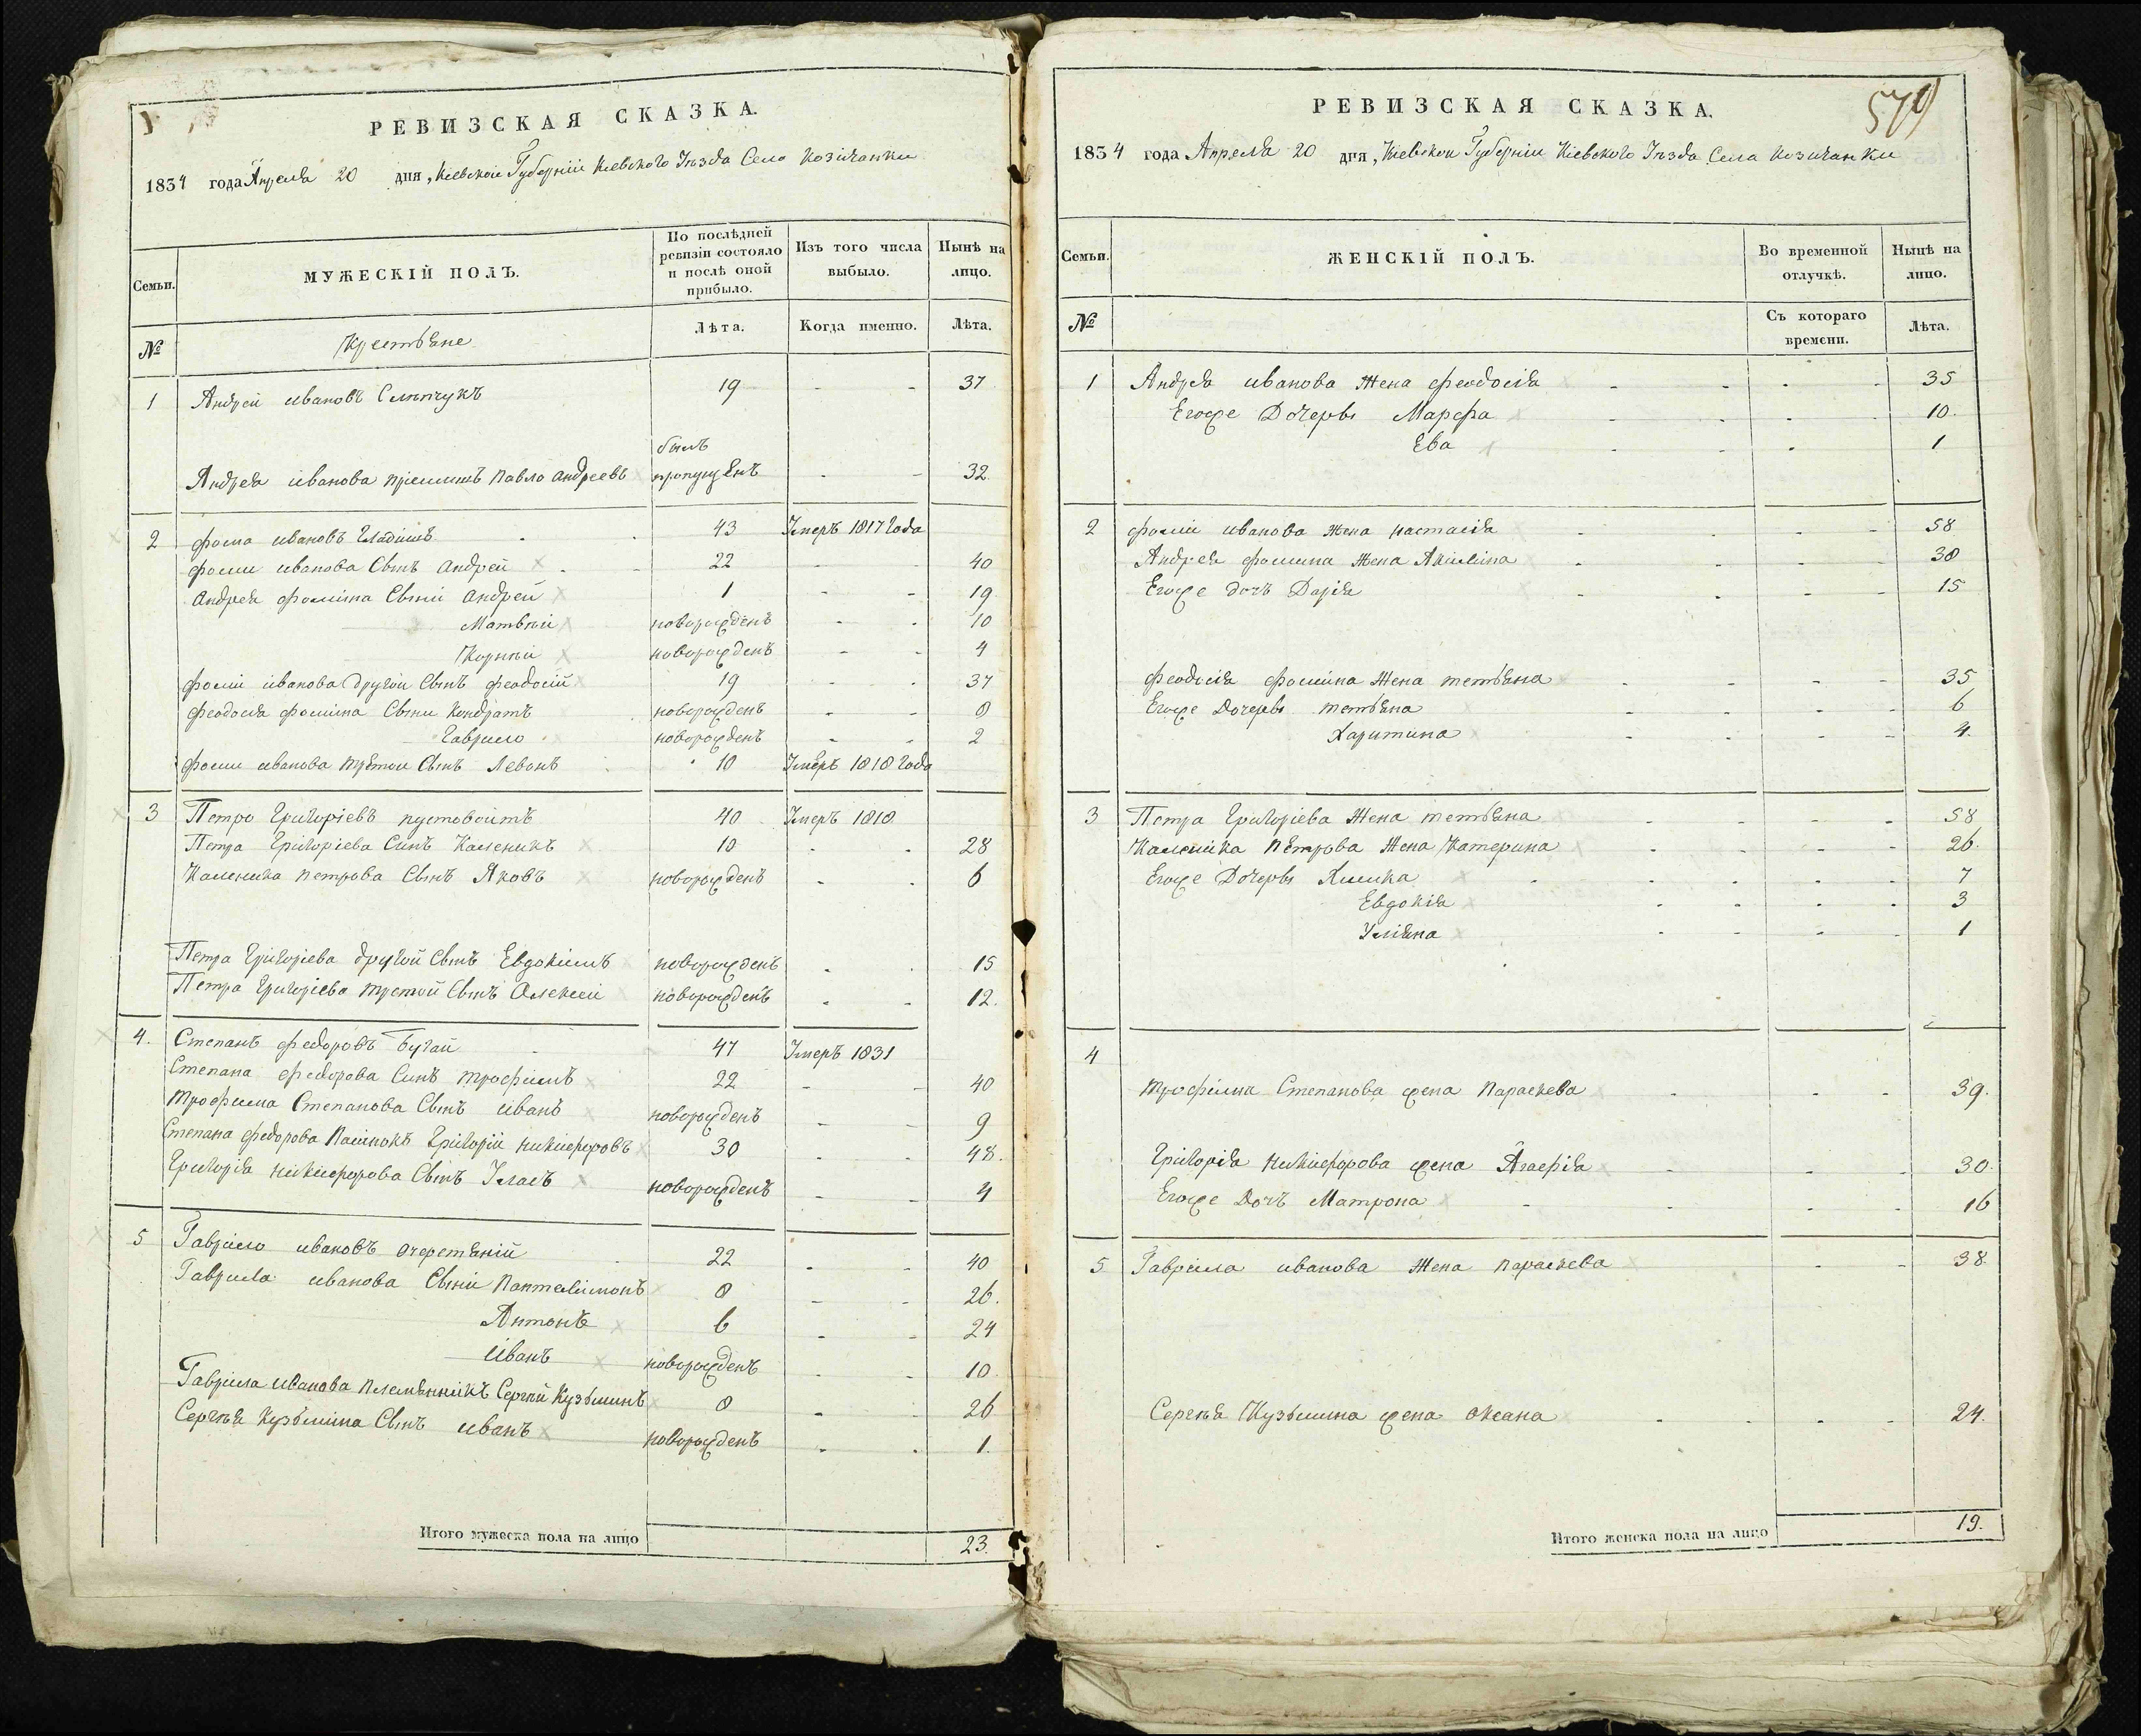 РЕВИЗСКАЯ СКАЗКА.
1834 года Апреля 20 дня, Кіевской Губерніи Кіевского Уезда Село Козичанки
Семьи.
МУЖЕСКІЙ ПОЛЪ.
По послѣдней ревизіи состояло и послѣ оной прибыло.
Изъ того числа выбыло.
Нынѣ на лицо.
№
Крестьяне
Лѣта.
Когда именно.
Лѣта.
1 Андрей ивановъ 19 - - 37
былъ
Андрея иванова приимишъ Павло андреевъ пропущенъ - - 32
2 фома ивановъ Гладишъ 43 Умеръ 1817 Года
фоми иванова Сынъ андрей 22 - - 40
андрея фомина Сыни андрей 1 - - 19
Матвѣи новорожденъ - - 10
Корнѣи новорожденъ - - 4
фоми иванова другои Сынъ феодосій 19 - - 37
феодосія фомина Сыни Кондратъ новорожденъ - - 8
Гаврило новорожденъ - - 2
фоми иванова третои Сынъ Левонъ 10 Умеръ 1818 Года
3 Петро Григоріевъ пустовоитъ 40 Умеръ 1818
Петра Григоріева Синъ Каленикъ 10 - - 28
Каленика петрова Сынъ Яковъ новорожденъ - - 6
Петра Григоріева другой Сынъ Евдокимъ новорожденъ - - 15
Петра Григоріева третой Сынъ Алексеи новорожденъ - - 12.
4. Степанъ федоровъ Бугаи 47 Умеръ 1831
Степана федорова Синъ трофимъ 22 - - 40
трофима Степанова Сынъ иванъ новорожденъ - - 9
Степана федорова Пасинокъ Григорій никифоровъ 30 - - 48.
Григорія никифорова Сынъ Уласъ новорожденъ - - 4
5 Гаврило ивановъ очеретяній 22 - - 40
Гаврила иванова Сыни Пантелимонъ 8 - - 26.
Антонъ 6 - - 24
Иванъ новорожденъ - - 10.
Гаврила иванова племянникъ Сергѣй Кузьминъ 8 - - 26
Сергѣя Кузьмина Сынъ иванъ новорожденъ - - 1.
Итого мужеска пола на лицо 23.
579
РЕВИЗСКАЯ СКАЗКА.
1834 года Апреля 20 дня, Кіевской Губерніи Кіевского Уезда Села Козичанки
Семьи.
ЖЕНСКІЙ ПОЛЪ.
Во временной отлучкѣ.
Нынѣ на лицо.
№
Съ котораго времени.
Лѣта.
1 Андрея иванова Жена феодосія - - - 35
Егоже Дочеры Марфа - - - 10.
Ева - - - 1
2 фоми иванова Жена настасія - - - 58
Андрея фомина Жена Акилина - - - 38
Егоже дочъ Дарія - - - 15
феодосія фомина Жена тетьяна - - - 35
Егоже Дочеры тетьяна - - - 6
Харитина - - - 4.
3 Петра Григоріева Жена тетьяна - - - 58
Каленика Петрова Жена Катерина - - - 26.
Егоже Дочеры Химка - - - 7
Евдокія - - - 3
Уліяна - - - 1
4
трофима Степанова жена Параскева - - - 39.
Григорія никифорова жена Агафія - - - 30.
Егоже Дочъ Матрона - - - 16
5 Гаврила иванова Жена Параскева - - 38
Сергѣя Кузьмина жена оксана - - - 24.
Итого женска пола на лицо 19.